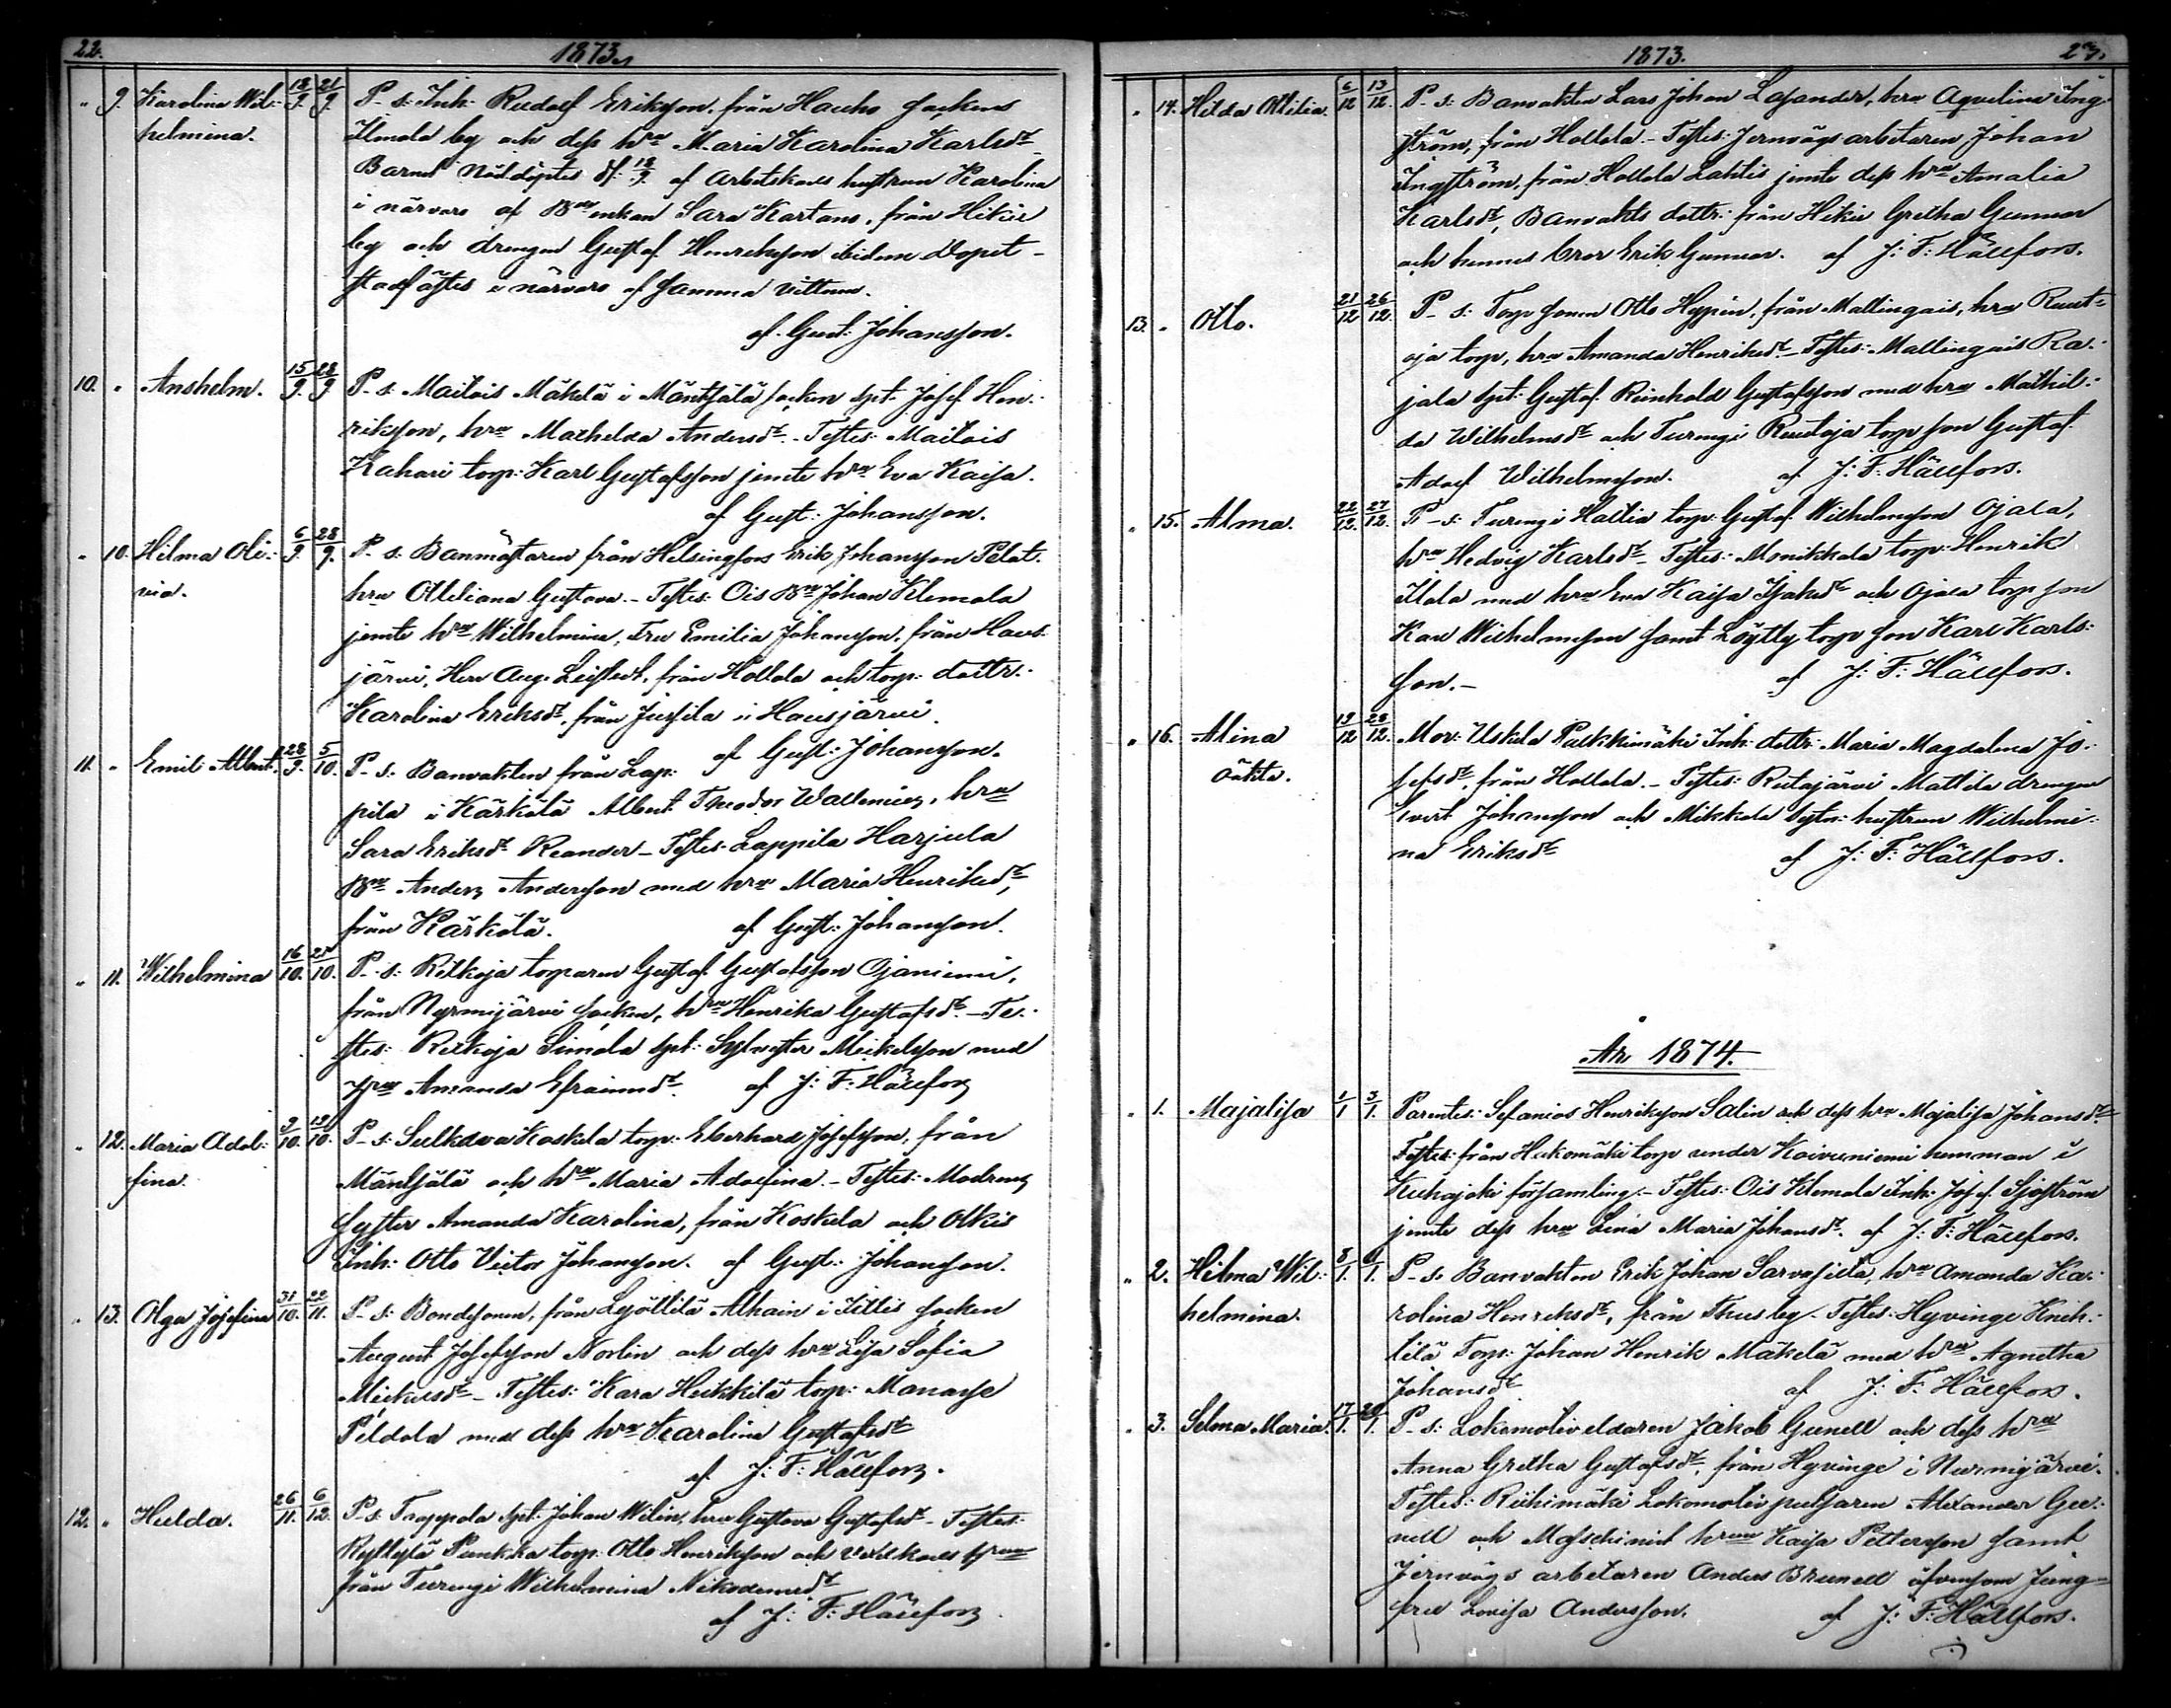 22. 1873.
" 9. Karolina Wil- 18/9. 21/9. P-s: Inh: Rudolf Eriksson, från Hauho sockens
helmina. Ilmola by och dess hru Maria Karolina Karlsdr
Barnet nöddöptes d: 18/9. af Arbetskarls hustrun Karolina
i närvaro af Bdeenkan Sara Kartano, från Hikiä
by och drengen Gustaf Henriksson ibidem Dopet
stadfästes i närvaro af samma vittnen.
af. Gust: Johansson.
10. " Anshelm. 15/9. 28/9. P-s: Maitois Mäkelä i Mäntsälä socken spt. Josef Hen-
riksson, hru Mathilda Andersdr. - Testes: Maitois
Kahari torp: Karl Gustafsson jemte hru Eva Kaisa.
af Gust: Johansson.
" 10. Hilma Oli- 6/9. 28/9. P-s: Banmästaren från Helsingfors Erik Johansson Pelat.
via. hru Ottiliana Gustava. - Testes: Ois Bd Johan Klemola
jemte hru Wilhelmina, Fru Emilia Johansson, från Haus-
järvi, Herr Aug. från Hollola och torp: dottr:
Karolina Eriksdr, från Jussila i Hausjärvi.
af Gust: Johansson.
11. " Emil Albert. 28/9. 5/10. P-s: Banvakten från Lap-
pila i Kärkölä Albert Theodor Wallenius, hru
Sara Eriksdr Reander - Testes: Lappila Harjula
Bd Anders Andersson med hru Maria Henriksdr,
från Kärkölä. af Gust: Johansson.
" 11. Wilhelmina 16/10. 25/10. P-s: Ritkoja torparen Gustaf Gustafsson Ojaniemi,
från Nurmijärvi socken, hru Henrika Gustafsdr. - Te-
stes: Ritkoja Simola spt: Sylvester Mickelsson med
hru Amanda Efraimsdr. af J: F: Hällfors
" 12. Maria Adol- 9/10. 19/10. P-s: Sulkava Koskela torp: Eberhard Josefsson, från
fina. Mäntsälä och hru Maria Adolfina. - Testes: Modrens
syster Amanda Karolina, från Koskela och Otkis
Inh: Otto Victor Johansson. af Gust: Johansson.
" 13. Olga Josefina 31/10. 22/11. P-s: Bondsonen, från Lyöttilä Alhain i Iittis socken
August Josefsson Norlin och dess hru Lisa Sofia
Mickelsdr - Testes: Kara Heikkilä torp: Manasse
Peldola med dess hru Karolina Gustafsdr
af J: F: Hällfors.
12. " Hulda. 26/11. 6/12. P-s: Torppola spt: Johan Wilin, hru Gustava Gustafsdr - Testes:
Ryttylä Punkka torp: Otto Henriksson och hru
från Turengi Wilhelmina Nikodemusdr
af J: F: Hällfors
1873. 23.
" 14. Hilda Ottilia. 6/12 13/12. P-s: Banvakten Lars Johan Lasander, hru Aqvilina Ing-
ström, från Hollola. - Testes: Jernvägsarbetaren Johan
Ingström, från Hollola Lahtis jemte dess hru Amalia
Karlsdr, Banvakts dottr: från Hikiä Gretha Gunnar
och hennes bror Erik Gunnar. af J: F: Hällfors.
13. " Otto. 21/12 26/12. P-s: Torp sonen Otto Hyppin, från Mallingais, hru Ruut-
oja torp, hru Amanda Henriksdr - Testes: Mallingais Ra-
jala spt: Gustaf Reinhold Gustafsson med hru Mathil-
da Wilhelmsdr och Turengi Ruutoja torp son Gustaf
Adolf Wilhelmsson. af J: F: Hällfors.
" 15. Alma. 22/12. 27/12. P-s: Turengi Hattia torp: Gustaf Wilhelmsson Ojala,
hru Hedvig Karlsdr - Testes: Monikkala torp: Henrik
Ilola med hru Eva Kaisa Isaksdr och Ojala torp son
Karl Wilhelmsson samt Löytty torp son Karl Karls-
son. - af J: F: Hällfors.
" 16. Alina 19/12 28/12. Mor: Uskila Pukkimäki Inh: dottr: Maria Magdalena Jo-
oäkta. sefsdr, från Hollola. - Testes: Rutajärvi Mattila drengen
Evert Johansson och Mikkola hustrun Wilhelmi-
na Eriksdr af J: F: Hällfors.
År 1874.
" 1. Majalisa 1/1 3/1. Parentes: Sefanias Henriksson Salin och dess hru Majalisa Johansdr.
Testes: från Hukomäki torp under Koivuniemi hemman i
församling: - Testes: Ois Klemola Inh: Josef Sjöström
jemte dess hru Lena Maria Johansdr. af J: F: Hällfors.
" 2. Hilma Wil- 8/1. 11/1. P-s: Banvakten Erik Johan Sarvasilla, hru Amanda Ka-
helmina. rolina Henriksdr, från Thusby. - Testes: Hyvinge Kneh-
tilä Torp: Johan Henrik Mäkelä med hru Agnetha
Johansdr af J: F: Hällfors.
" 3. Selma Maria. 17/1. 20/1. P-s: Lokomotiv eldaren Jakob Gunell och dess hru
Anna Gretha Gustafsdr, från Hyvinge i Nurmijärvi.
Testes: Riihimäki Lokomotiv putsaren Alexander Gu-
nell och Maschinist hrun Kaisa Pettersson samt
Jernvägs arbetaren Anders Brunell äfvensom Jung-
fru Lovisa Andersson. af J: F: Hällfors.